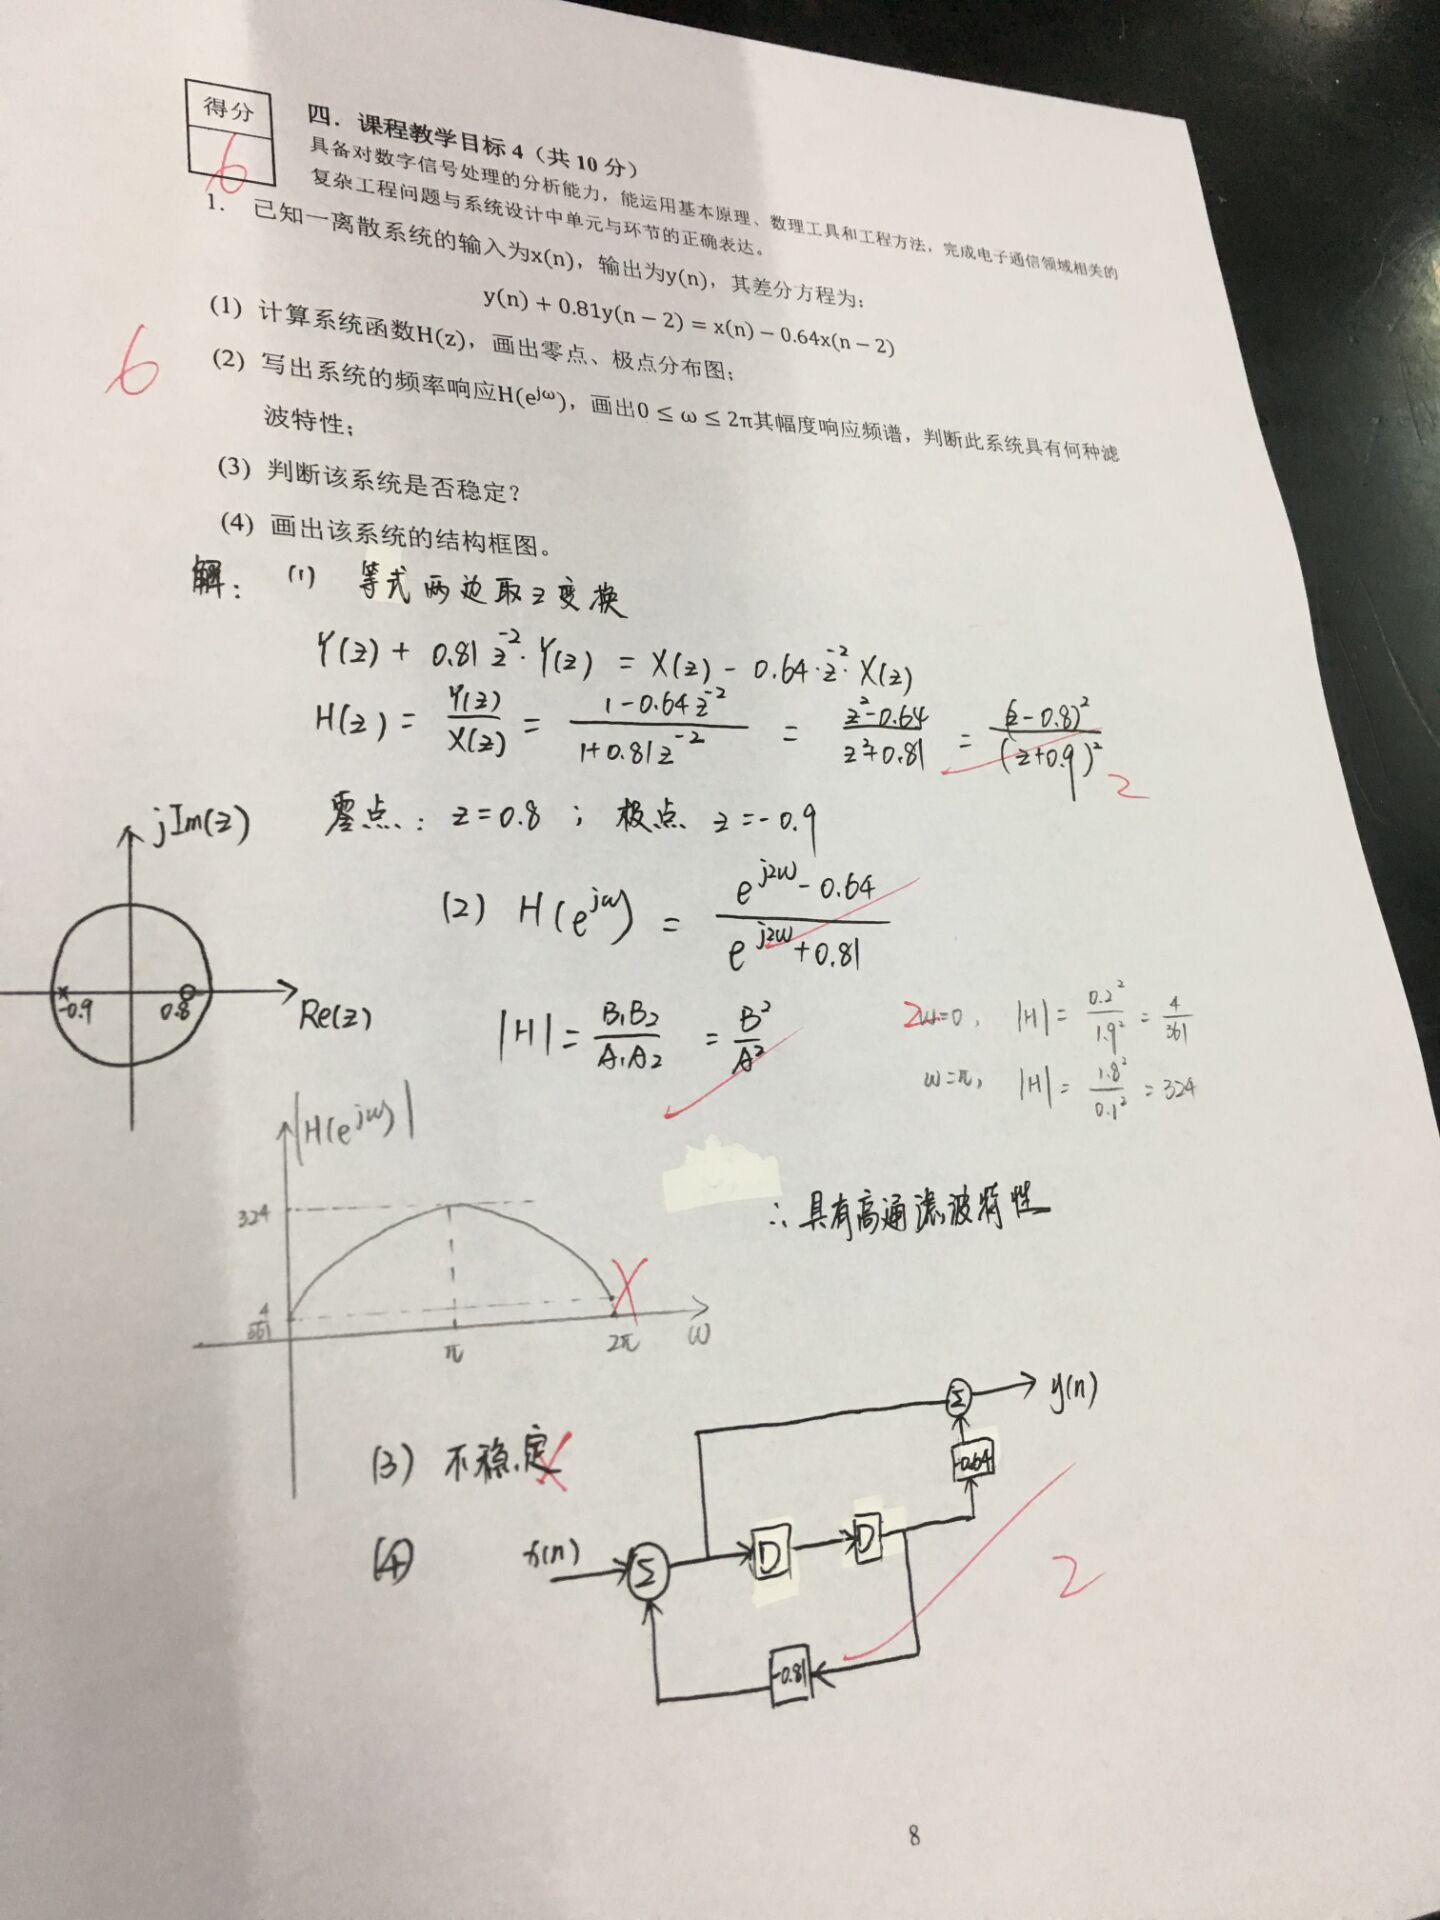 得分
6
四．课程教学目标 4（共 10 分）
具备对数字信号处理的分析能力，能运用基本原理、数理工具和工程方法，完成电子通信领域相关的
复杂工程问题与系统设计中单元与环节的正确表达。
1. 已知一离散系统的输入为x(n)，输出为y(n)，其差分方程为：
y(n) + 0.81y(n − 2) = x(n) − 0.64x(n − 2)
6
(1) 计算系统函数H(z)，画出零点、极点分布图；
(2) 写出系统的频率响应H(e^{jω})，画出0 ≤ ω ≤ 2π其幅度响应频谱，判断此系统具有何种滤
波特性；
(3) 判断该系统是否稳定？
(4) 画出该系统的结构框图。
解： (1) 等式两边取z变换
Y(z) + 0.81 z^{-2}·Y(z) = X(z) - 0.64·z^{-2}·X(z)
H(z) = Y(z)/X(z) = (1-0.64z^{-2})/(1+0.81z^{-2}) = (z²-0.64)/(z²+0.81) = (z-0.8)²/(z+0.9)²
2
零点：z=0.8；极点 z=-0.9
jIm(z)
-0.9 0.8
Re(z)
(2) H(e^{jω}) = (e^{j2ω}-0.64)/(e^{j2ω}+0.81)
|H| = B₁B₂/A₁A₂ = B²/A²
2
ω=0, |H| = 0.2²/1.9² = 4/361
ω=π, |H| = 1.8²/0.1² = 324
|H(e^{jω})|
324
4/361
π 2π ω
∴具有高通滤波特性
(3) 不稳定
(4) x(n) Σ D D -0.64 Σ y(n)
-0.81
2
8